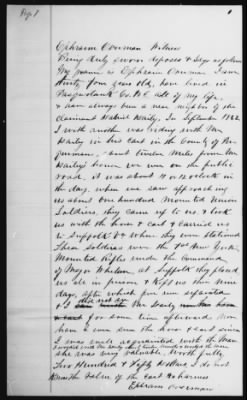 Page 1
Ephraim Overman Witness
Being duly sworn deposes & says as follows
My name is Ephraim Overman I am
thirty four years old, have lived in
Pasquotank Co. N.C. all of my life,
& have always been a near neighbor of the
claimant In September 1862
I with another was riding with Mr
in his cart in the County of Per
quimans, about twelve miles from Mr
home, we were on the public
road, it was about 11 or 12 o'clock in
the day, when we saw approaching
us about one hundred Mounted Union
Soldiers, they came up to us & took
us with the horse & cart & carried us
to Suffolk Va where they were stationed
These soldiers were the 1st New York
Mounted Rifles under the Command
of Major Wheelan, at Suffolk they placed
us all in prison & kept us there nine
days, after which
I did not see Mr
for some time afterwards nor
have I ever seen the horse & cart since
I was well acquainted with the Mare
she was very valuable. Worth fully
Two Hundred & Fifty Dollars I do not
know the value of the cart & harness
Ephraim Overman